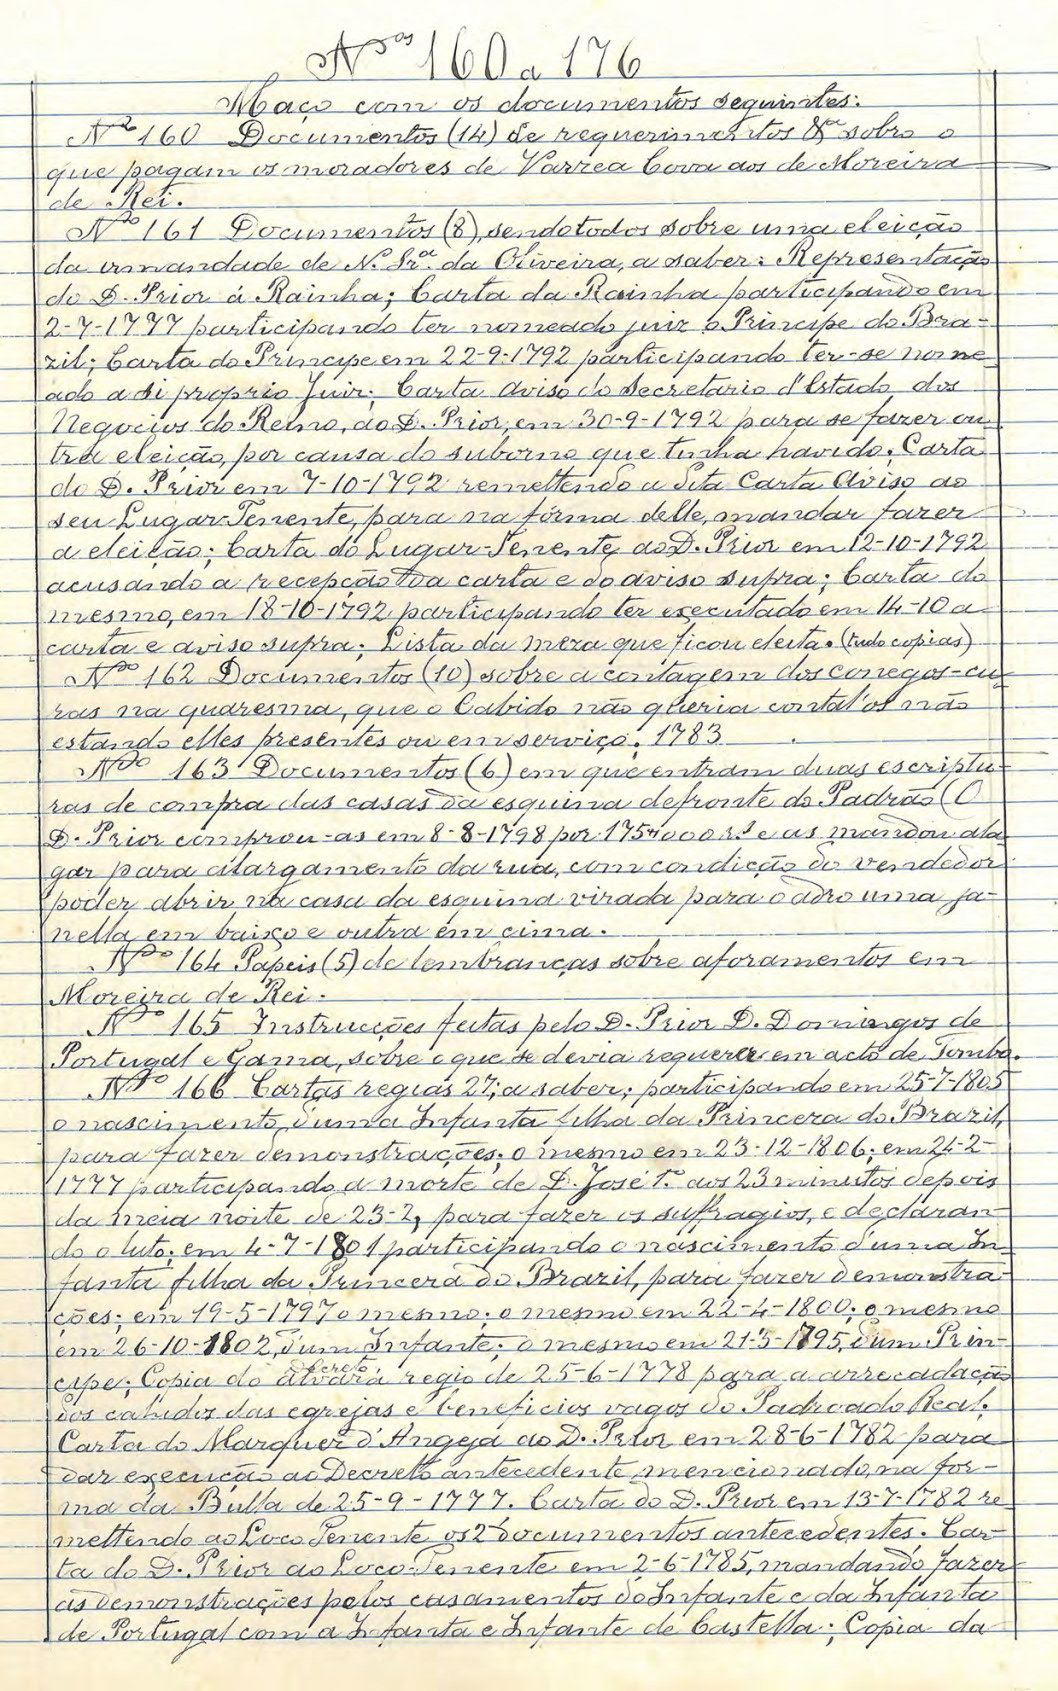 Nos 160 a 176
Maço com os documentos seguintes:
Nº 160 Documentos (14) de requerimentos &ª sobre o
que pagam os moradores de Varzea Cova aos de Moreira
de Rei.
Nº 161 Documentos (8), sendo todos sobre uma eleição
da irmandade de N. Srª. da Oliveira, a saber: Representação
do D. Prior á Rainha; Carta da Rainha participando em
2-7-1777 participando ter nomeado juiz o Principe do Bra-
zil; Carta do Principe em 22-9-1792 participando ter-se nome
ado a si proprio Juiz; Carta Aviso do Secretario d'Estado dos
Negocios do Reino, ao D. Prior, em 30-9-1792 para se fazer ou
tra eleição, por causa do suborno que tinha havido; Carta
do D. Prior em 7-10-1792 remettendo a dita Carta Aviso ao
seu Lugar-Tenente, para na fórma delle, mandar fazer
a eleição; Carta do Lugar-Tenente ao D. Prior em 12-10-1792
acusando a recepção da carta e do aviso supra; Carta do
mesmo, em 18-10-1792 participando ter executado em 14-10 a
carta e aviso supra; Lista da meza que ficou eleita. (tudo copias)
Nº 162 Documentos (10) sobre a contagem dos conegos-cu-
ras na quaresma, que o Cabido não queria contal'os não
estando elles presentes ou em serviço. 1783
Nº 163 Documentos (6) em que entram duas escriptu-
ras de compra das casas da esquina defronte do Padrão (O
D. Prior comprou-as em 8-8-1798 por 175$000 rs e as mandou ala
gar para alargamento da rua, com condição do vendedor
poder abrir na casa da esquina virada para o adro uma ja-
nella em baixo e outra em cima.
Nº 164 Papeis (5) de lembranças sobre aforamentos em
Moreira de Rei.
Nº 165 Instrucções feitas pelo D. Prior D. Domingos de
Portugal e Gama, sobre o que se devia requerer em acto de Tombo.
Nº 166 Cartas regias 27; a saber; participando em 25-7-1805
o nascimento d'uma Infanta filha da Princeza do Brazil,
para fazer demonstrações; o mesmo em 23-12-1806; em 24-2-
1777 participando a morte de D. José 1.º aos 23 minutos depois
da meia noite de 23-2, para fazer os suffragios, e declaran-
do o luto; em 4-7-1801 participando o nascimento d'uma In-
fanta filha da Princeza do Brazil, para fazer demonstra-
ções; em 19-5-1797 o mesmo; o mesmo em 22-4-1800; o mesmo
em 26-10-1802, d'um Infante; o mesmo em 21-3-1795, d'um Prin-
cipe; Copia do alvará decreto. regio de 25-6-1778 para a arrecadação
dos cahidos das egrejas e beneficios vagos do Padroado Real.
Carta do Marquez d'Angeja ao D. Prior em 28-6-1782 para
dar execução ao Decreto antecedente mencionado, na for-
ma da Bulla de 25-9-1777. Carta do D. Prior em 13-7-1782 re
mettendo ao Loco Tenente os 2 documentos antecedentes. Car-
ta do D. Prior ao Loco-Tenente em 2-6-1785, mandando fazer
as demonstrações pelos casamentos do Infante e da Infanta
de Portugal com a Infanta e Infante de Castella; Copia da